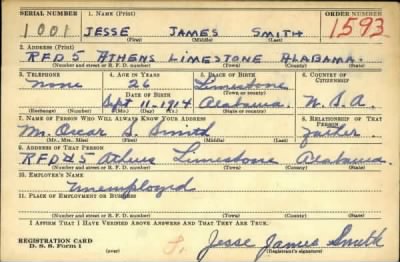 SERIAL NUMBER 1. NAME (Print) ORDER NUMBER
1001 JESSE JAMES SMITH 1593
(First) (Middle) (Last)
2. ADDRESS (Print)
RFD 5 ATHENS LIMESTONE ALABAMA.
(Number and street or R. F. D. number) (Town) (County) (State)
3. TELEPHONE 4. AGE IN YEARS 5. PLACE OF BIRTH 6. COUNTRY OF CITIZENSHIP
None 26 Limestone
DATE OF BIRTH (Town or county)
Sept 11-1914 Alabama. U.S.A.
(Exchange) (Number) (Mo.) (Day) (Yr.) (State or country)
7. NAME OF PERSON WHO WILL ALWAYS KNOW YOUR ADDRESS 8. RELATIONSHIP OF THAT PERSON
Mr. Oscar S. Smith Father.
(Mr., Mrs., Miss) (First) (Middle) (Last)
9. ADDRESS OF THAT PERSON
RFD #5 Athens Limestone Alabama.
(Number and street or R. F. D. number) (Town) (County) (State)
10. EMPLOYER'S NAME
Unemployed
11. PLACE OF EMPLOYMENT OR BUSINESS
(Number and street or R. F. D. number) (Town) (County) (State)
I AFFIRM THAT I HAVE VERIFIED ABOVE ANSWERS AND THAT THEY ARE TRUE.
REGISTRATION CARD
D. S. S. Form 1 (over) Jesse James Smith
(Registrant's signature)